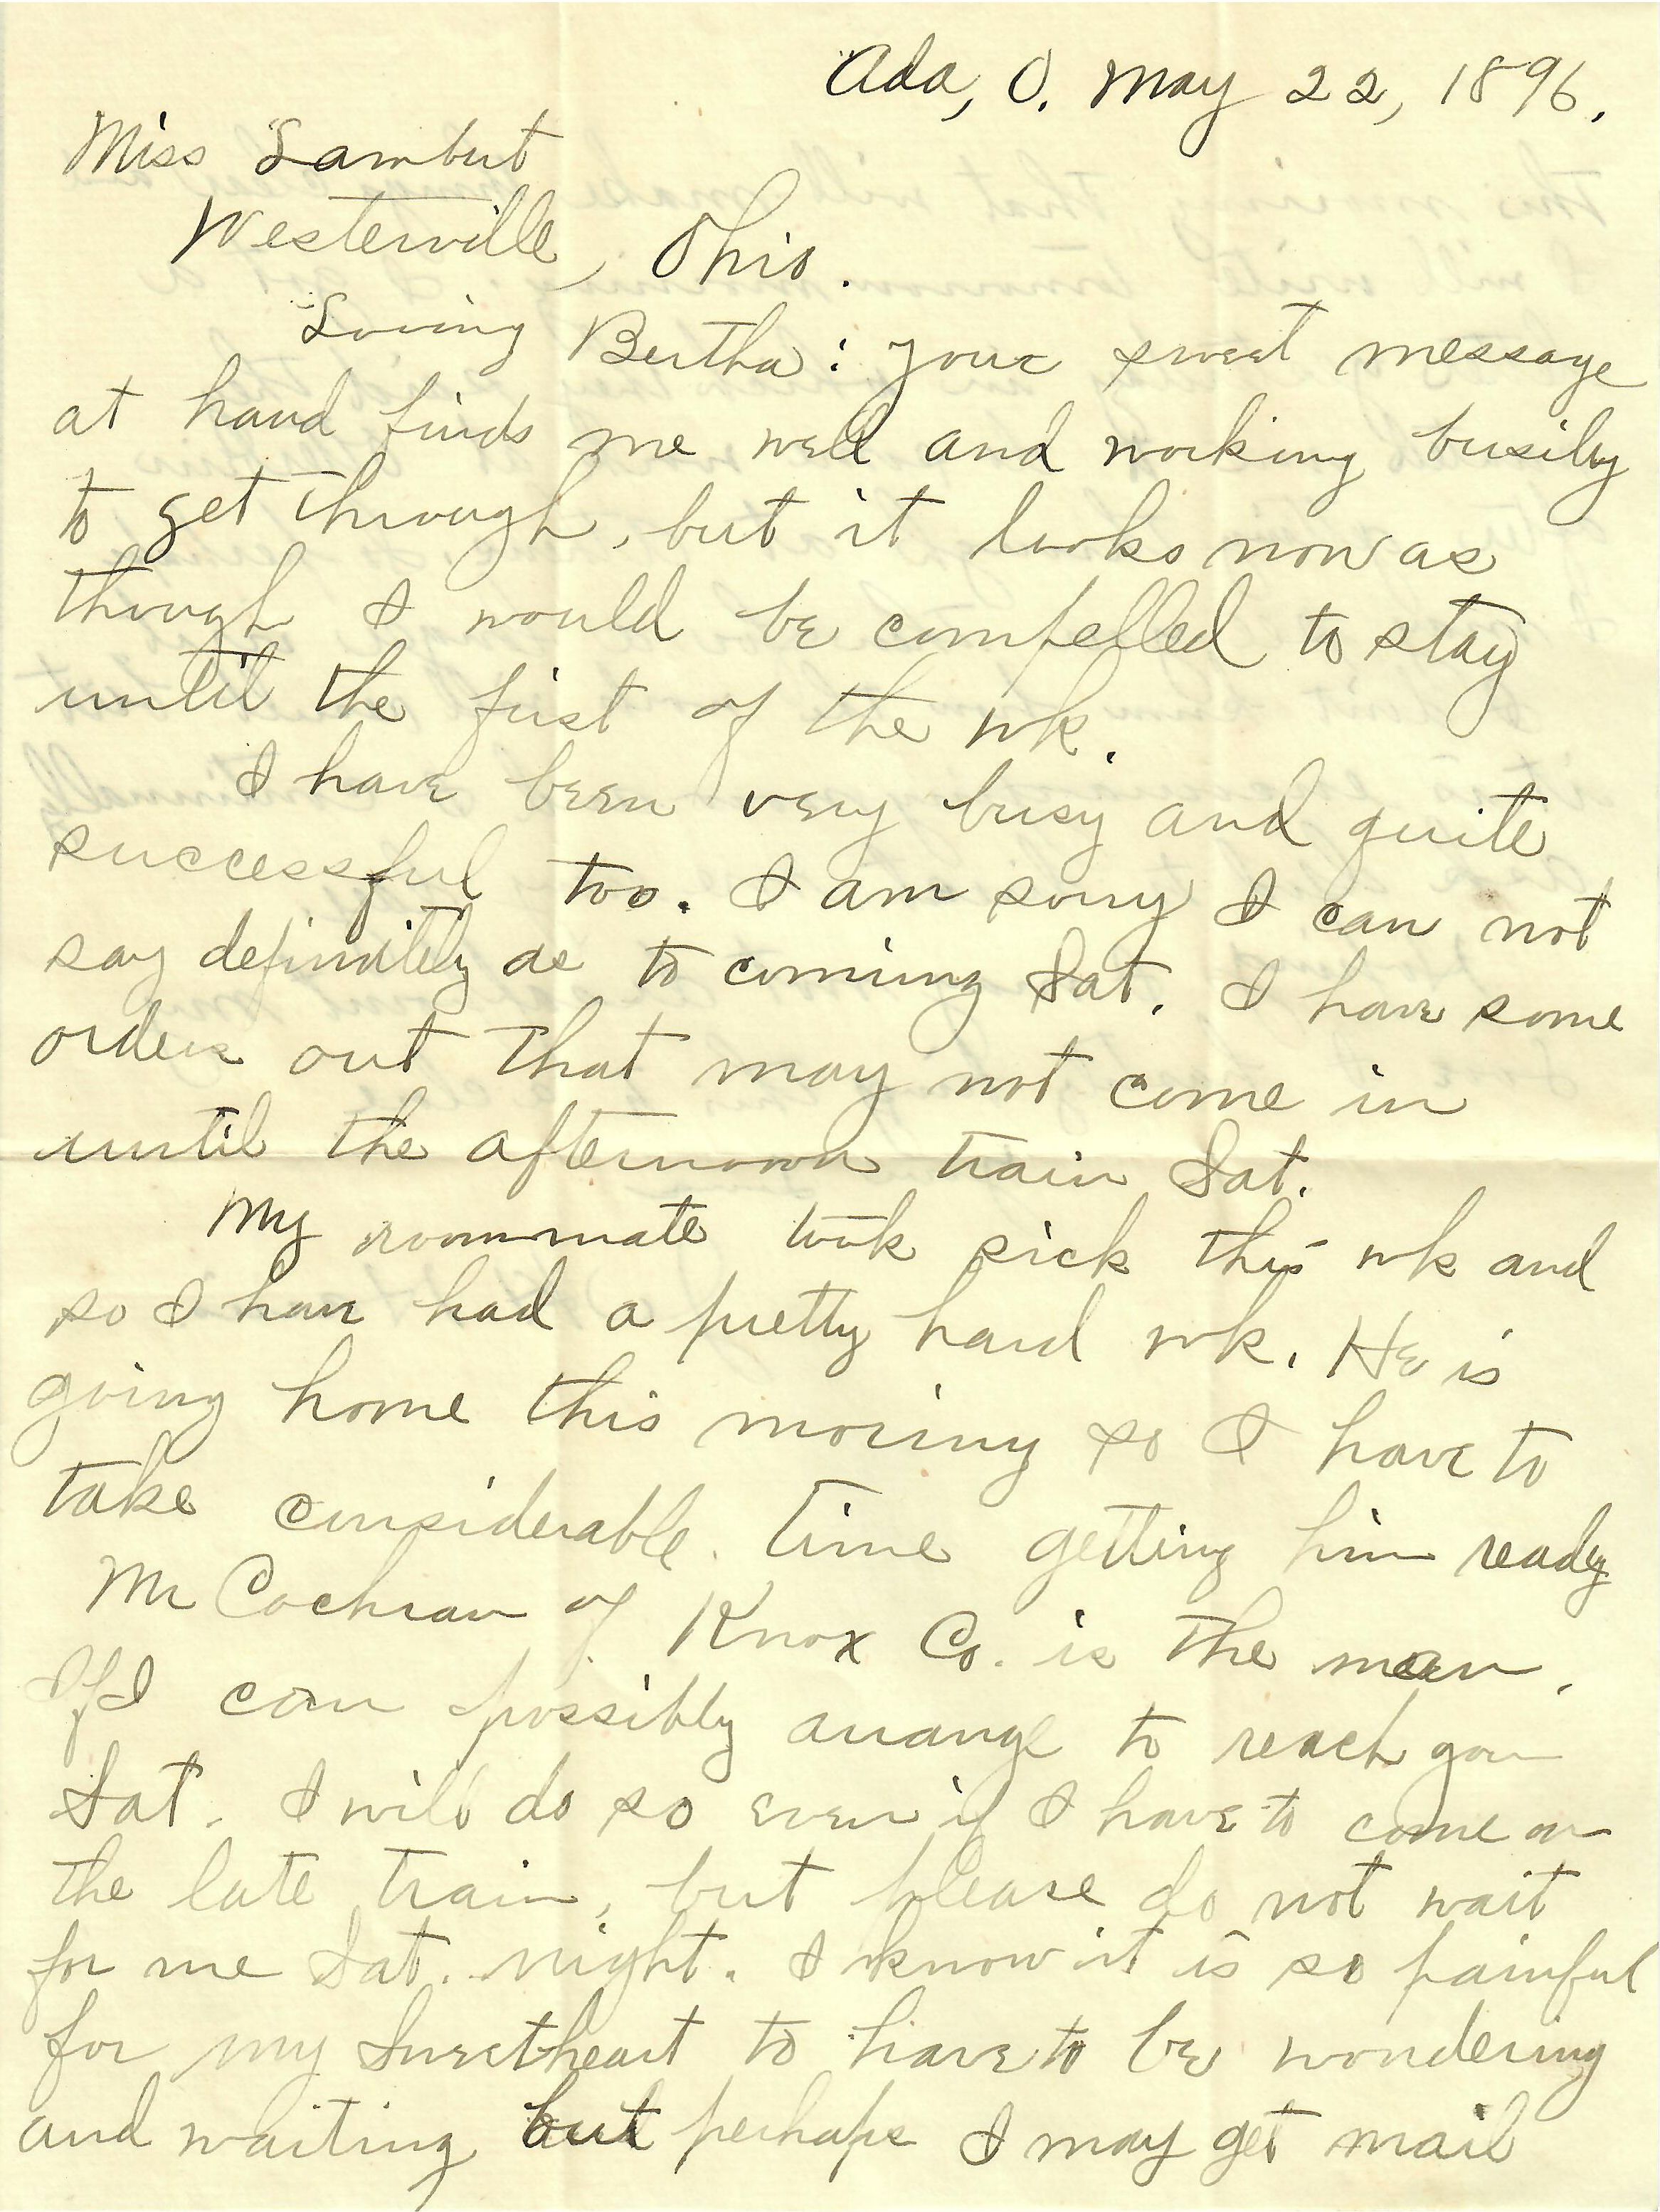 Ada, O. May 22, 1896.
Miss Lambert
Westerville, Ohio.
Loving Bertha: your sweet message
at hand finds me well and working busily
to get through, but it looks now as
though I would be compelled to stay
until the first of the wk.
I have been very busy and quite
successful too. I am sorry I can not
say definitely as to coming Sat. I have some
orders out that may not come in
until the afternoon train Sat.
My roommate took sick this wk and
so I have had a pretty hard wk. He is
going home this moring so I have to
take considerable time getting him ready
Mr Cochran of Knox Co. is the man.
If I can possibly arrange to reach you
Sat. I will do so even if I have to come on
the late train, but please do not wait
for me Sat. night. I know it is so painful
for my Sweetheart to have to be wondering
and waiting but perhaps I may get mail